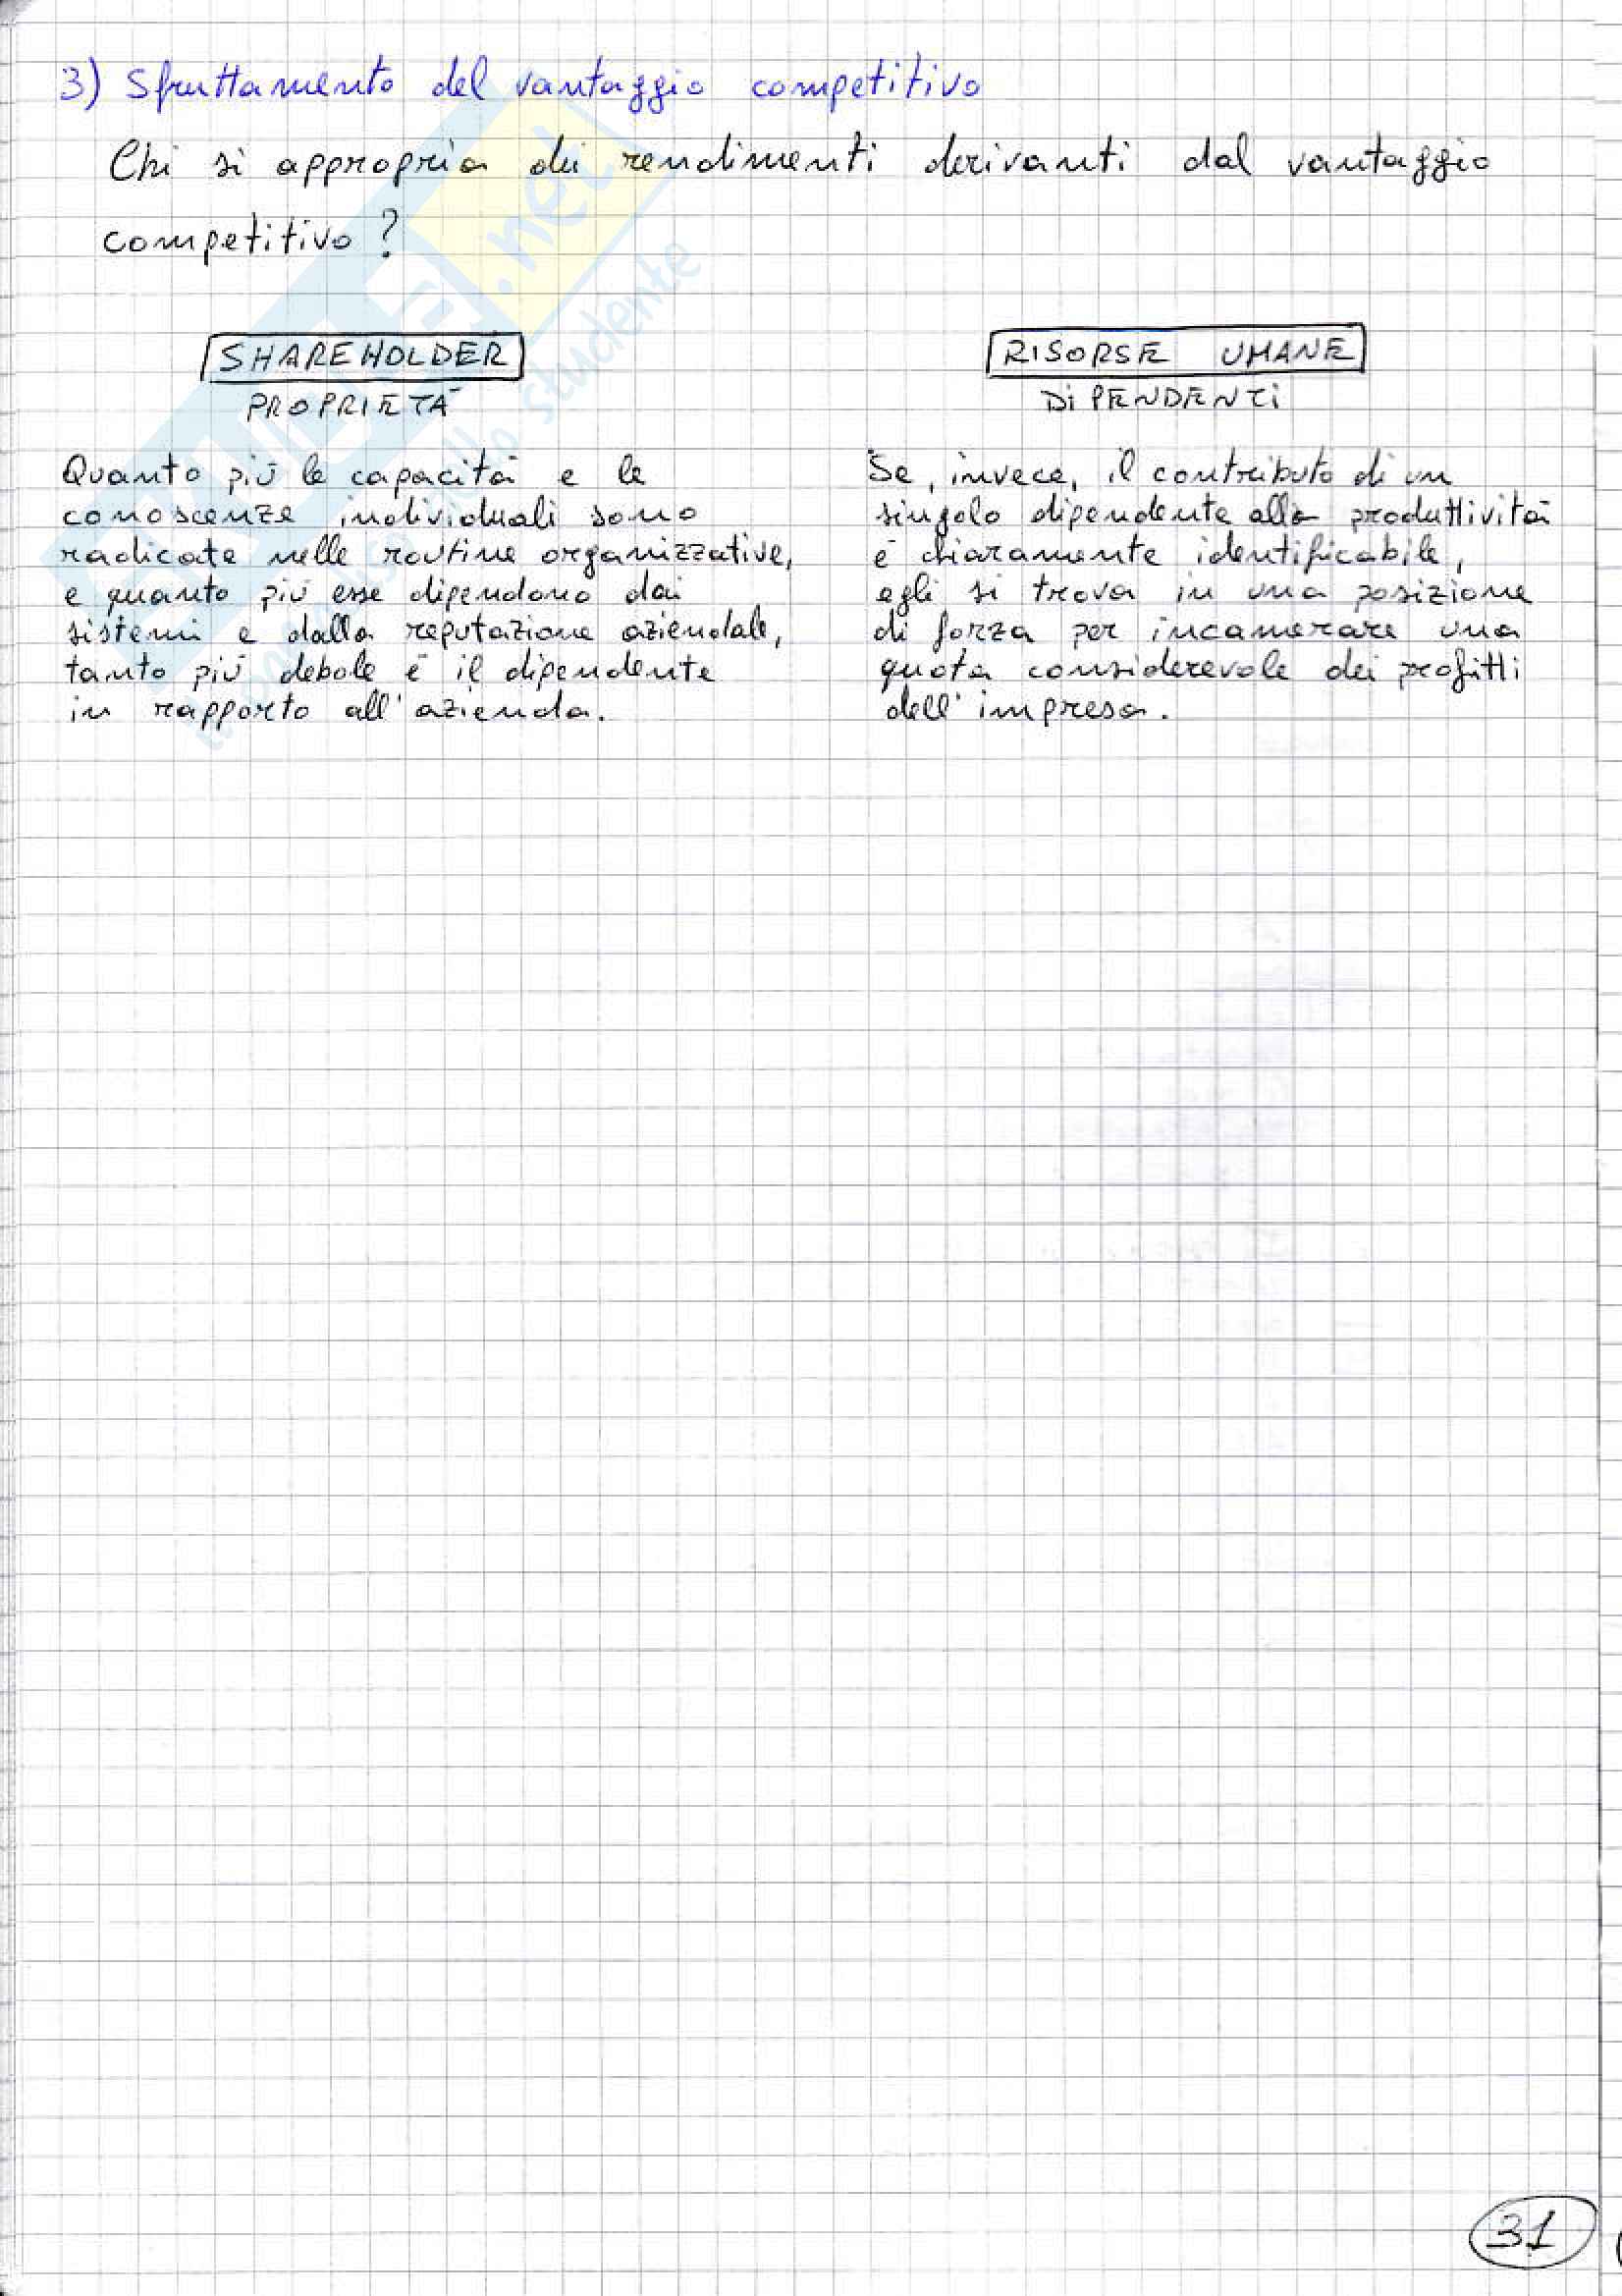 3) Sfruttamento del vantaggio competitivo
Chi si appropria dei rendimenti derivanti dal vantaggio
competitivo?
SHAREHOLDER
PROPRIETÀ
Quanto più le capacità e le
conoscenze individuali sono
radicate nelle routine organizzative,
e quanto più esse dipendono dai
sistemi e dalla reputazione aziendale,
tanto più debole è il dipendente
in rapporto all'azienda.
RISORSE UMANE
DIPENDENTI
Se, invece, il contributo di un
singolo dipendente alla produttività
è chiaramente identificabile,
egli si trova in una posizione
di forza per incamerare una
quota considerevole dei profitti
dell'impresa.
31
.net
studente